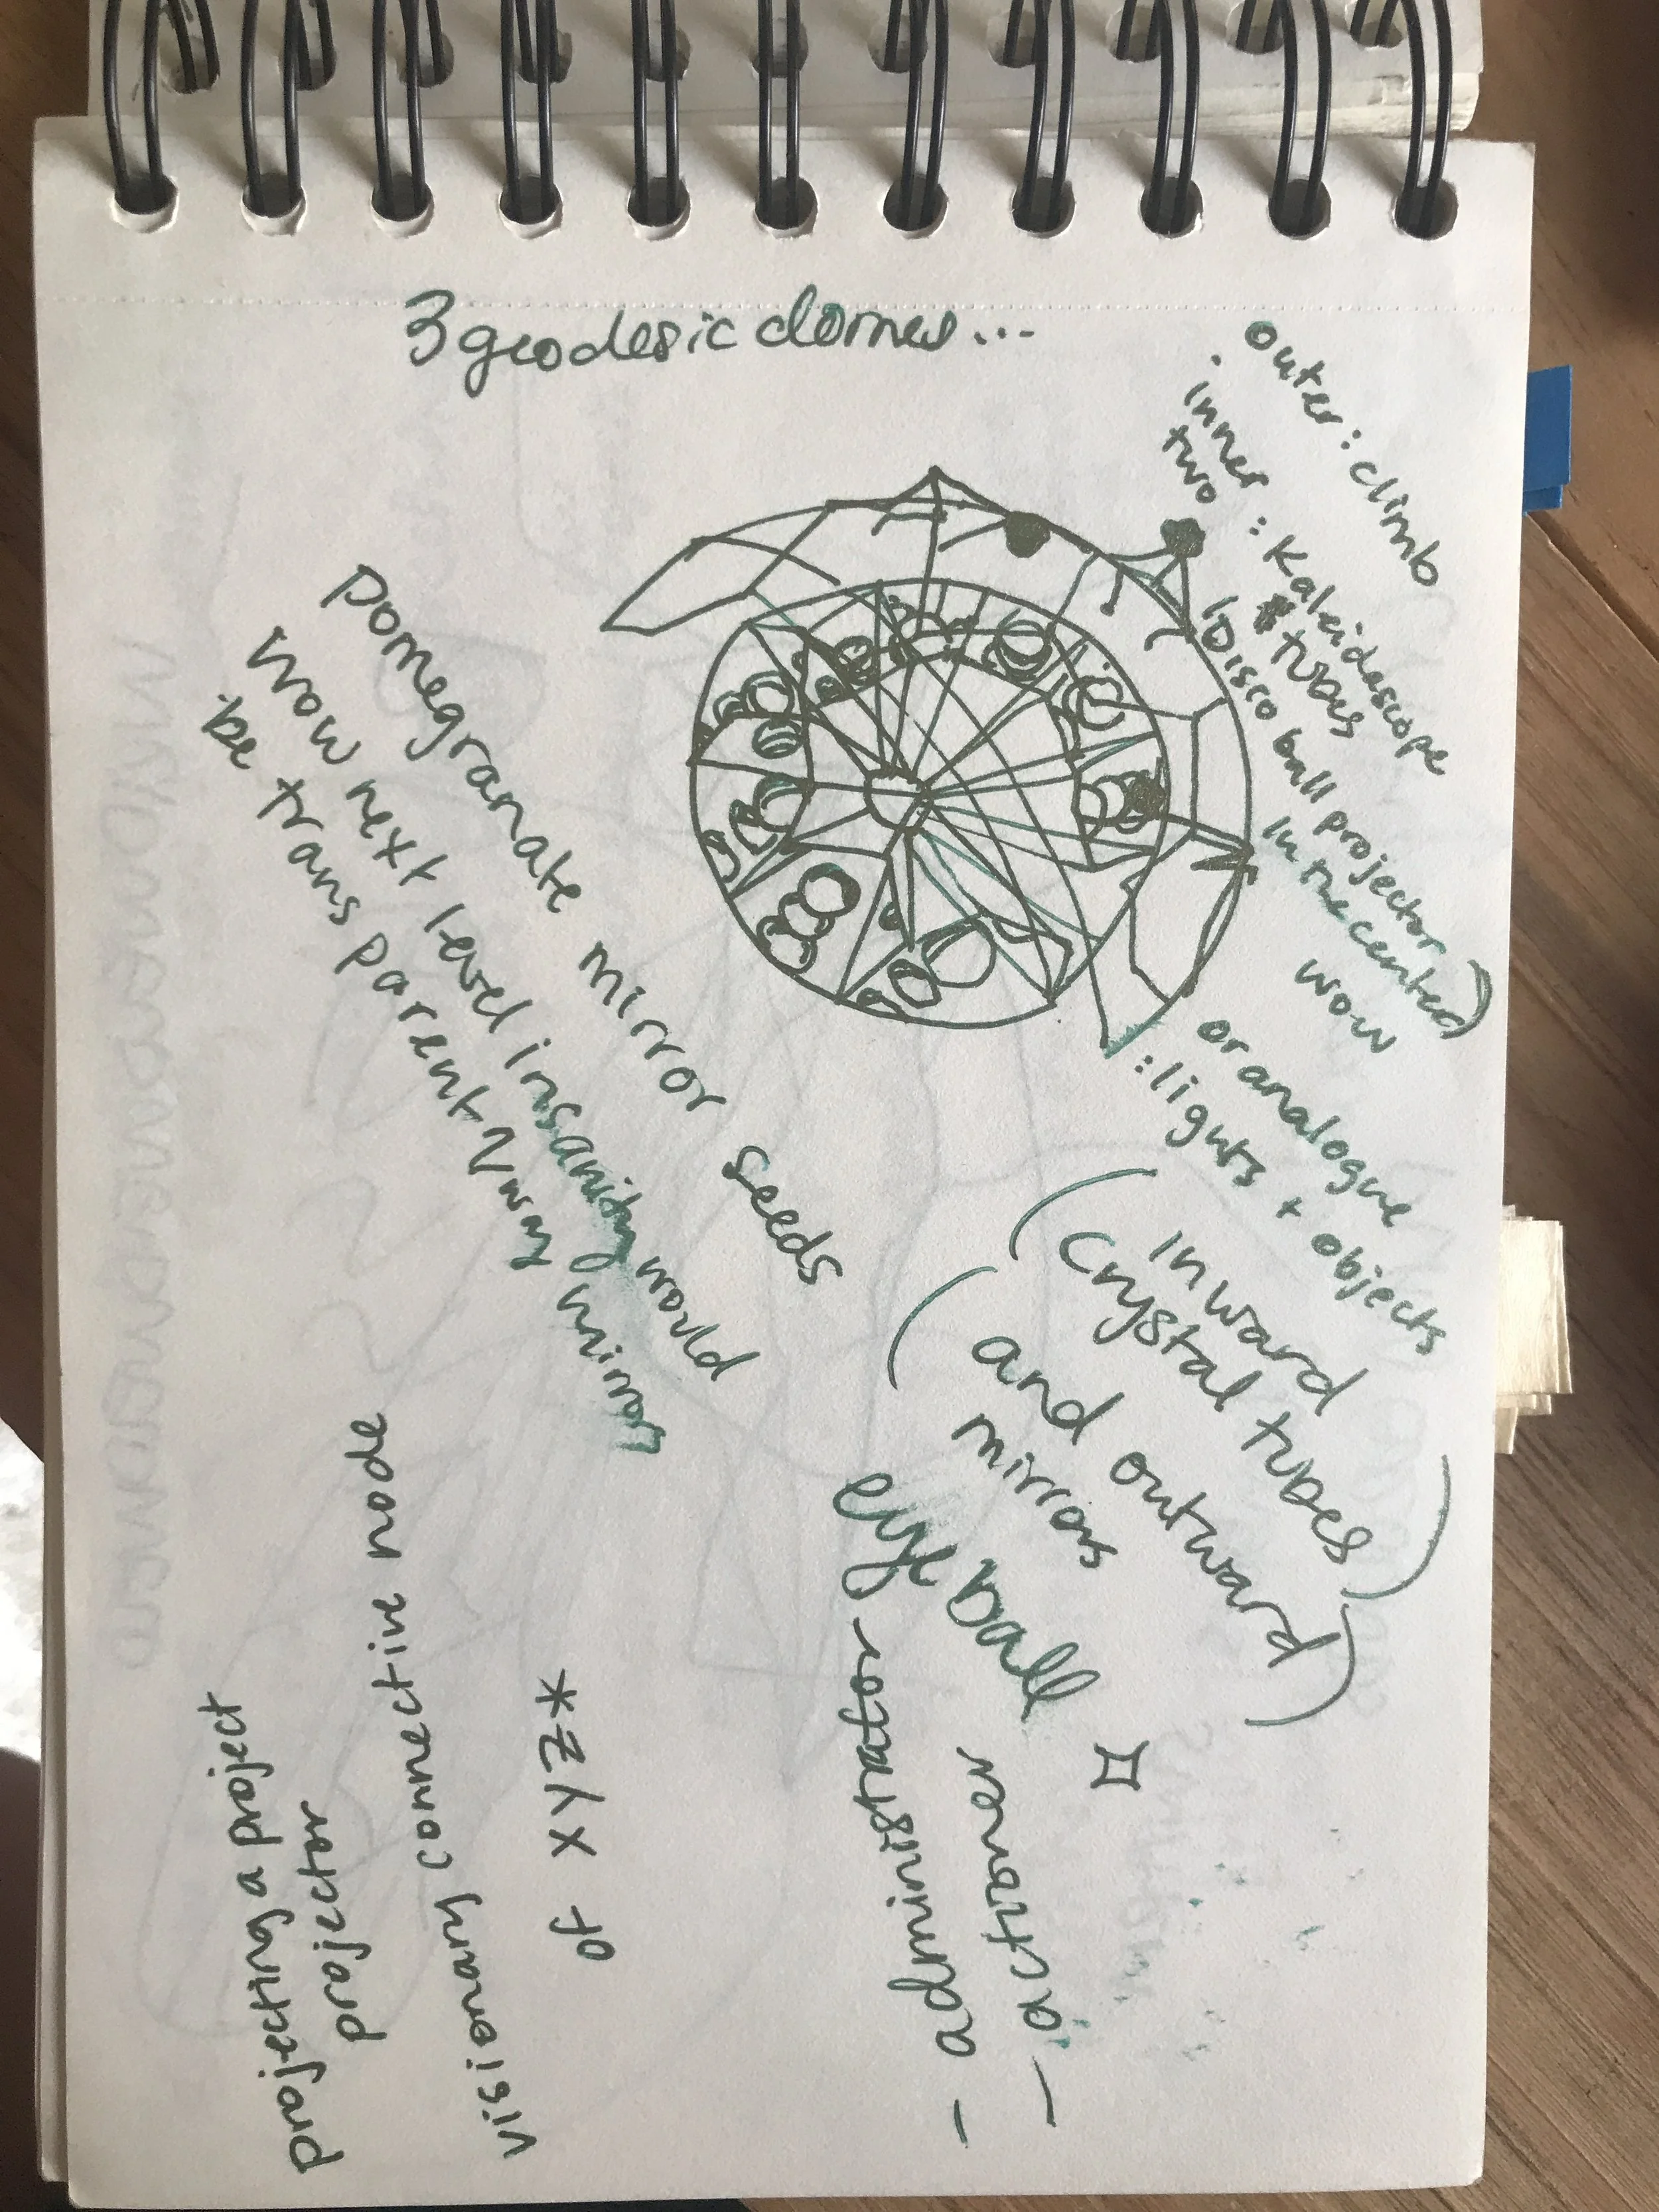 3 geodesic domes...
outer: climb
· inner : Kaleidoscope
two tubes
(Disco ball projector
in the center)
wow
or analogue
: lights + objects
inward
(Crystal tubes)
(and outward)
mirrors
eyeball
pomegranate mirror seeds
Wow next level insanity would
be transparent/1 way mirrors
- actioner
- administrator
of XYZ*
visionary connective node
projecting a project
projector